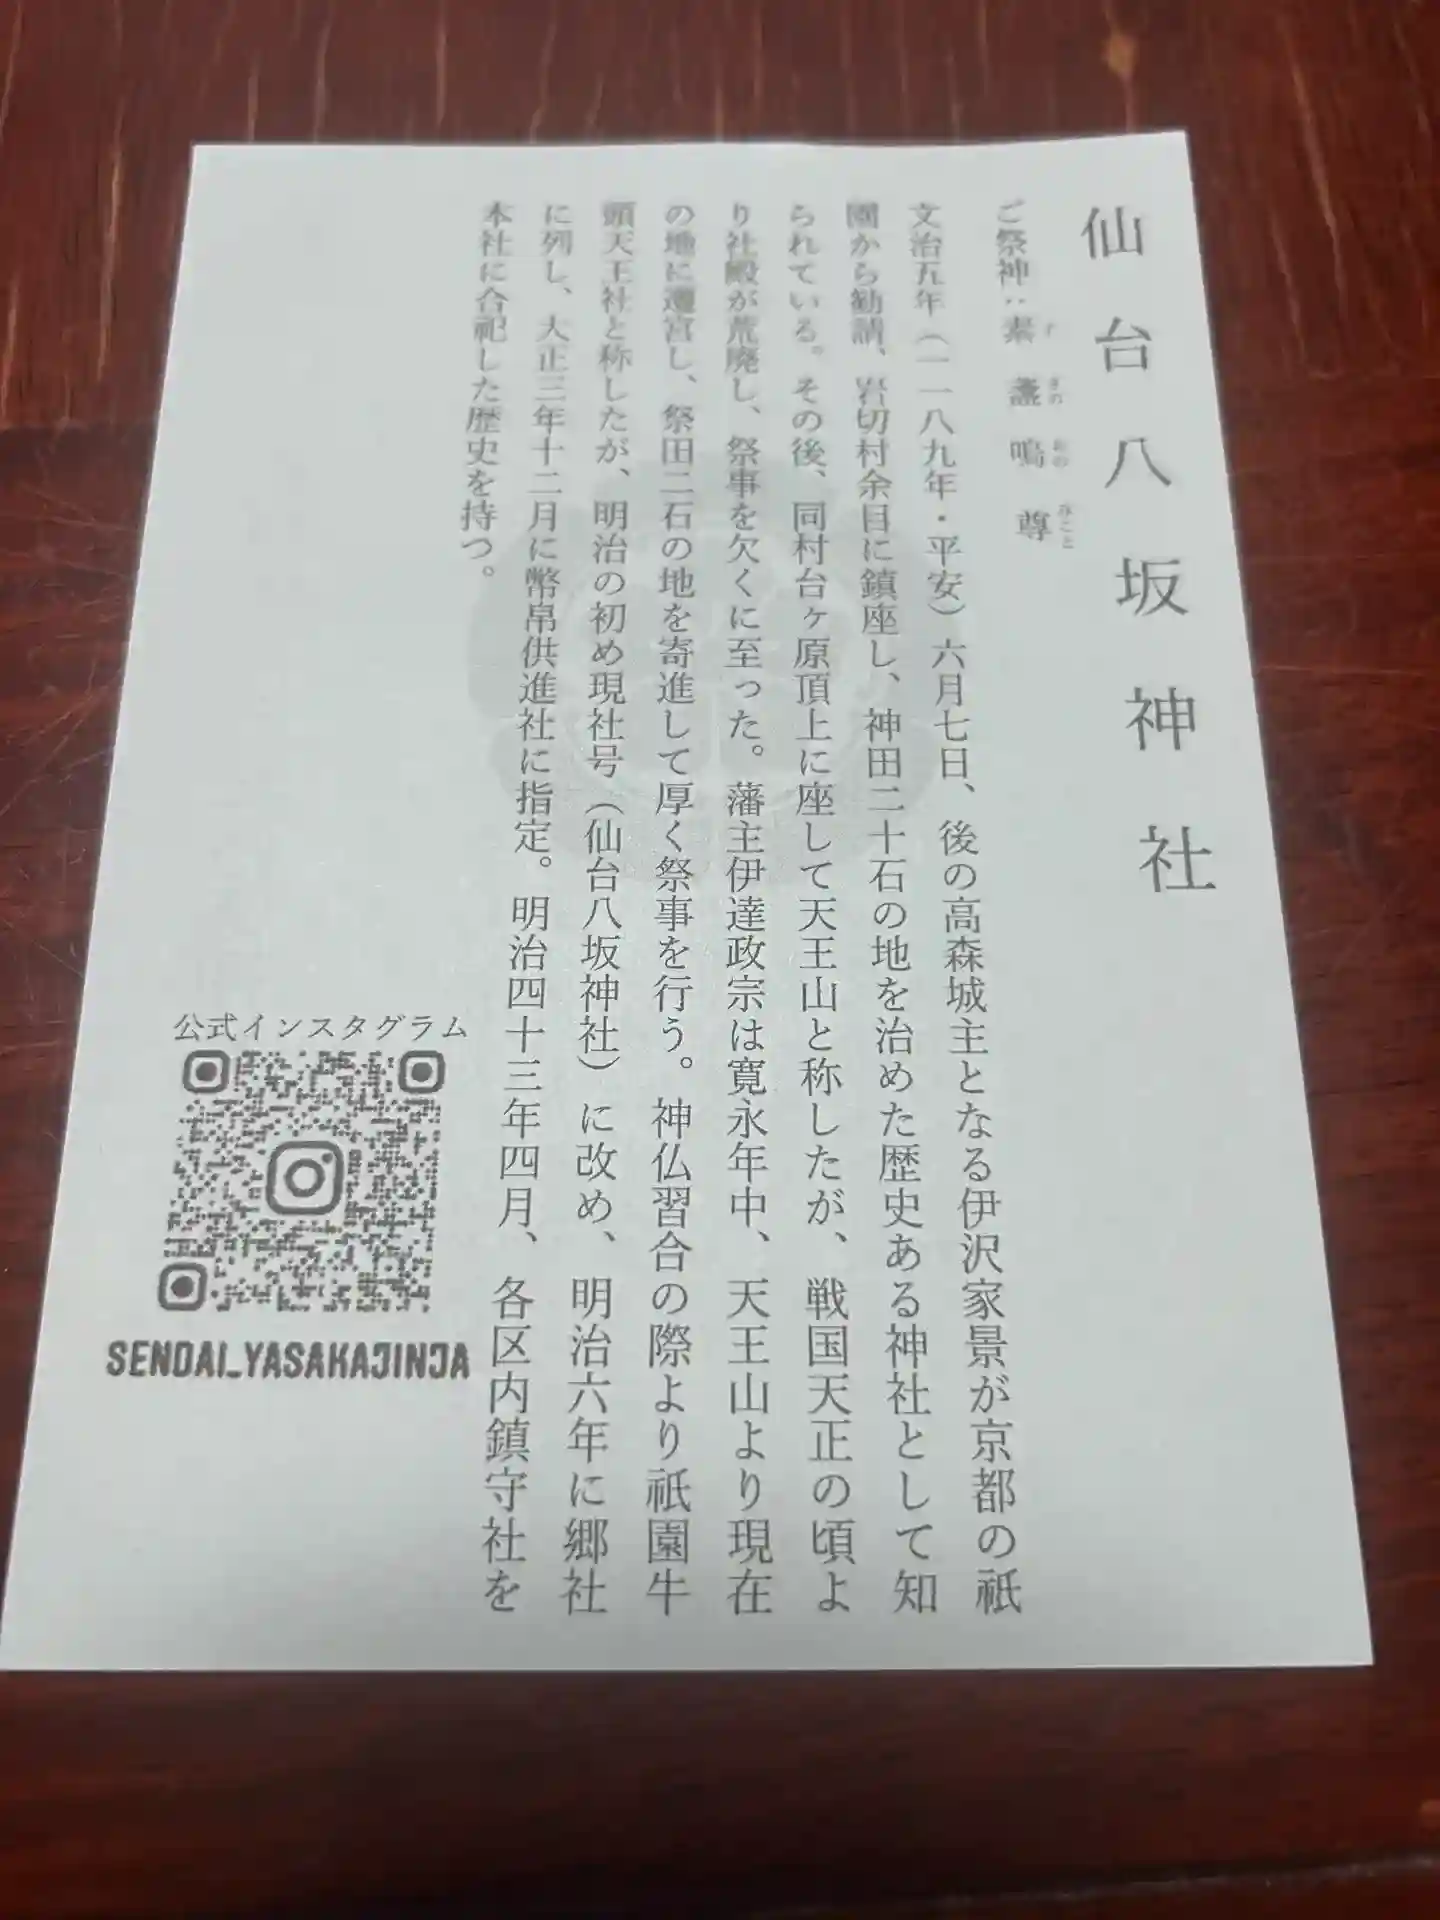 仙台八坂神社
ご祭神：素盞嗚尊
す さの おの みこと
文治五年（一一八九年・平安）六月七日、後の高森城主となる伊沢家景が京都の祇
園から勧請、岩切村余目に鎮座し、神田二十石の地を治めた歴史ある神社として知
られている。その後、同村台ヶ原頂上に座して天王山と称したが、戦国天正の頃よ
り社殿が荒廃し、祭事を欠くに至った。藩主伊達政宗は寛永年中、天王山より現在
の地に遷宮し、祭田二石の地を寄進して厚く祭事を行う。神仏習合の際より祇園牛
頭天王社と称したが、明治の初め現社号（仙台八坂神社）に改め、明治六年に郷社
に列し、大正三年十二月に幣帛供進社に指定。明治四十三年四月、各区内鎮守社を
本社に合祀した歴史を持つ。
公式インスタグラム
SENDAI_YASAKAJINJA